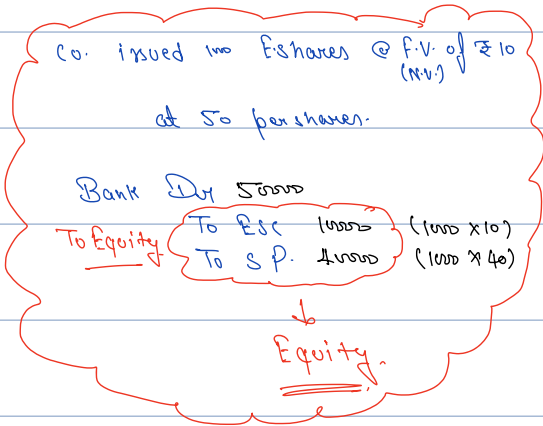 Co. issued 1000 E.shares @ F.V. of ₹10
(N.V.)
at 50 per shares.
Bank Dr 50000
To ESC 10000 (1000 x 10)
To Equity To S P. 40000 (1000 x 40)
Equity.